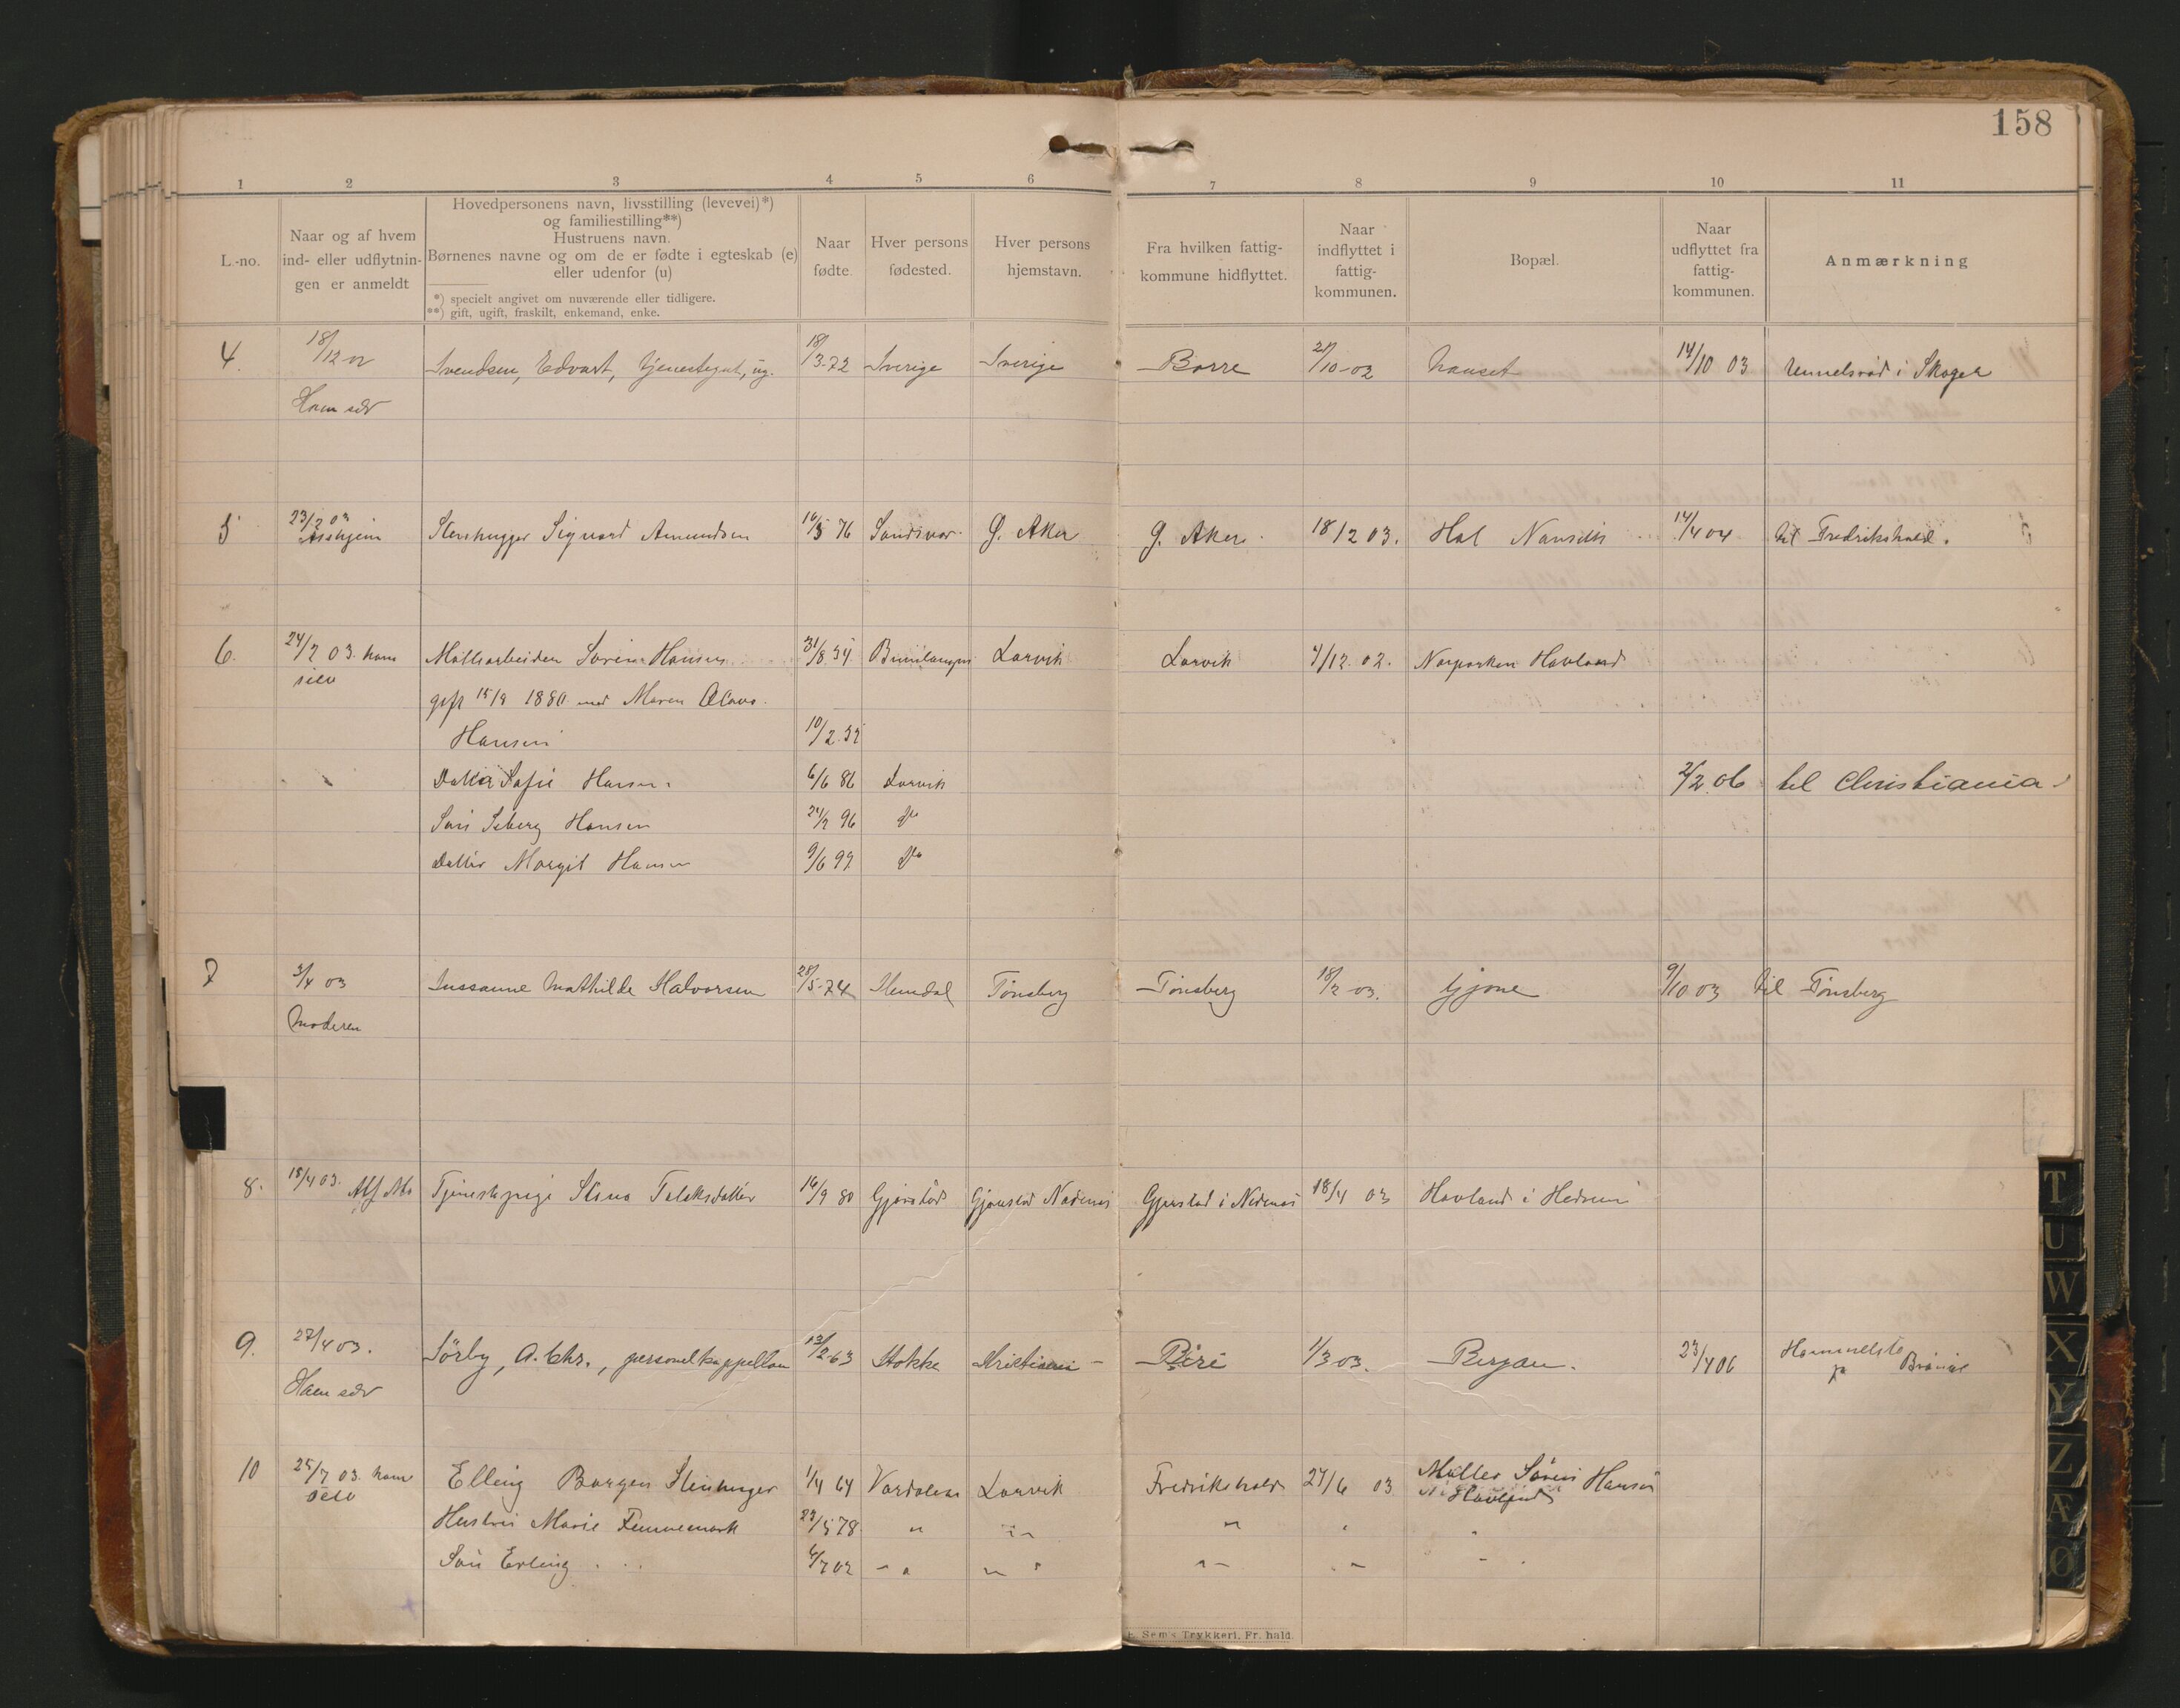 158
1 2 3 4 5 6 7 8 9 10 11
L.-no.
Naar og af hvem
ind- eller udflytnin-
gen er anmeldt
Hovedpersonens navn, livsstilling (levevei)*)
og familiestilling**)
Hustruens navn.
Børnenes navne og om de er fødte i egteskab (e)
eller udenfor (u)
*) specielt angivet om nuværende eller tidligere.
**) gift, ugift, fraskilt, enkemand, enke.
Naar
fødte.
Hver persons
fødested.
Hver persons
hjemstavn.
Fra hvilken fattig-
kommune hidflyttet.
Naar
indflyttet i
fattig-
kommunen.
Bopæl.
Naar
udflyttet fra
fattig-
kommunen.
Anmærkning
4. 18/12 02 Svendsen, Edvart, tjenestegut, ug. 18/3-72 Sverige Sverige Borre 21/10-02 Nauset 14/10 03 i Skoger
Ham selv
5 23/2 03 Stenhugger Sigvard Amundsen 16/5 76 Sandsvær G. Aker G. Aker. 18/2 03. Hol 14/4 04 til Fredrikshald.
6. 24/2 03. ham Hansen 31/8.54 Brunlangnes Larvik Larvik 4/12.02. Havland
selv gift 15/9 1880 med Maren Olava
Hansen 10/2.
Datter Sofie Hansen 6/6 86 Larvik 2/2.06 til Christiania.
Søn Seberg Hansen 24/2 96 Do
Datter Margit Hansen 9/6 99 Do
7 3/4 03 Sussanne Mathilde Halvorsen 28/5-74 Slemdal Tønsberg Tønsberg 18/2-03. Gjone 9/10 03 til Tønsberg
Moderen
8. 18/4 03. Tjenestepige Talaksdatter 16/9 80 Gjerstad Gjerstad Nedenes Gjerstad i Nedenes 18/4 03 Havland i Hedrum
9. 27/4 03. Sörby, A. Chr., personelkappellan 13/2 63 Stokke Kristiania Biri 1/3 03. Bergan. 23/4 06
Ham selv
10 25/7 03. ham Elling Borgen Stenhugger 1/4 64 Larvik Fredrikshald 27/6 03 Møller Søren Hansen
selv
Hustru Marie 23/5 78 " " " " "
Søn Erling 4/7 02 " " " " "
E. Sem's Trykkeri, Fr. hald.
T
U
W
X
Y
Z
Æ
Ø